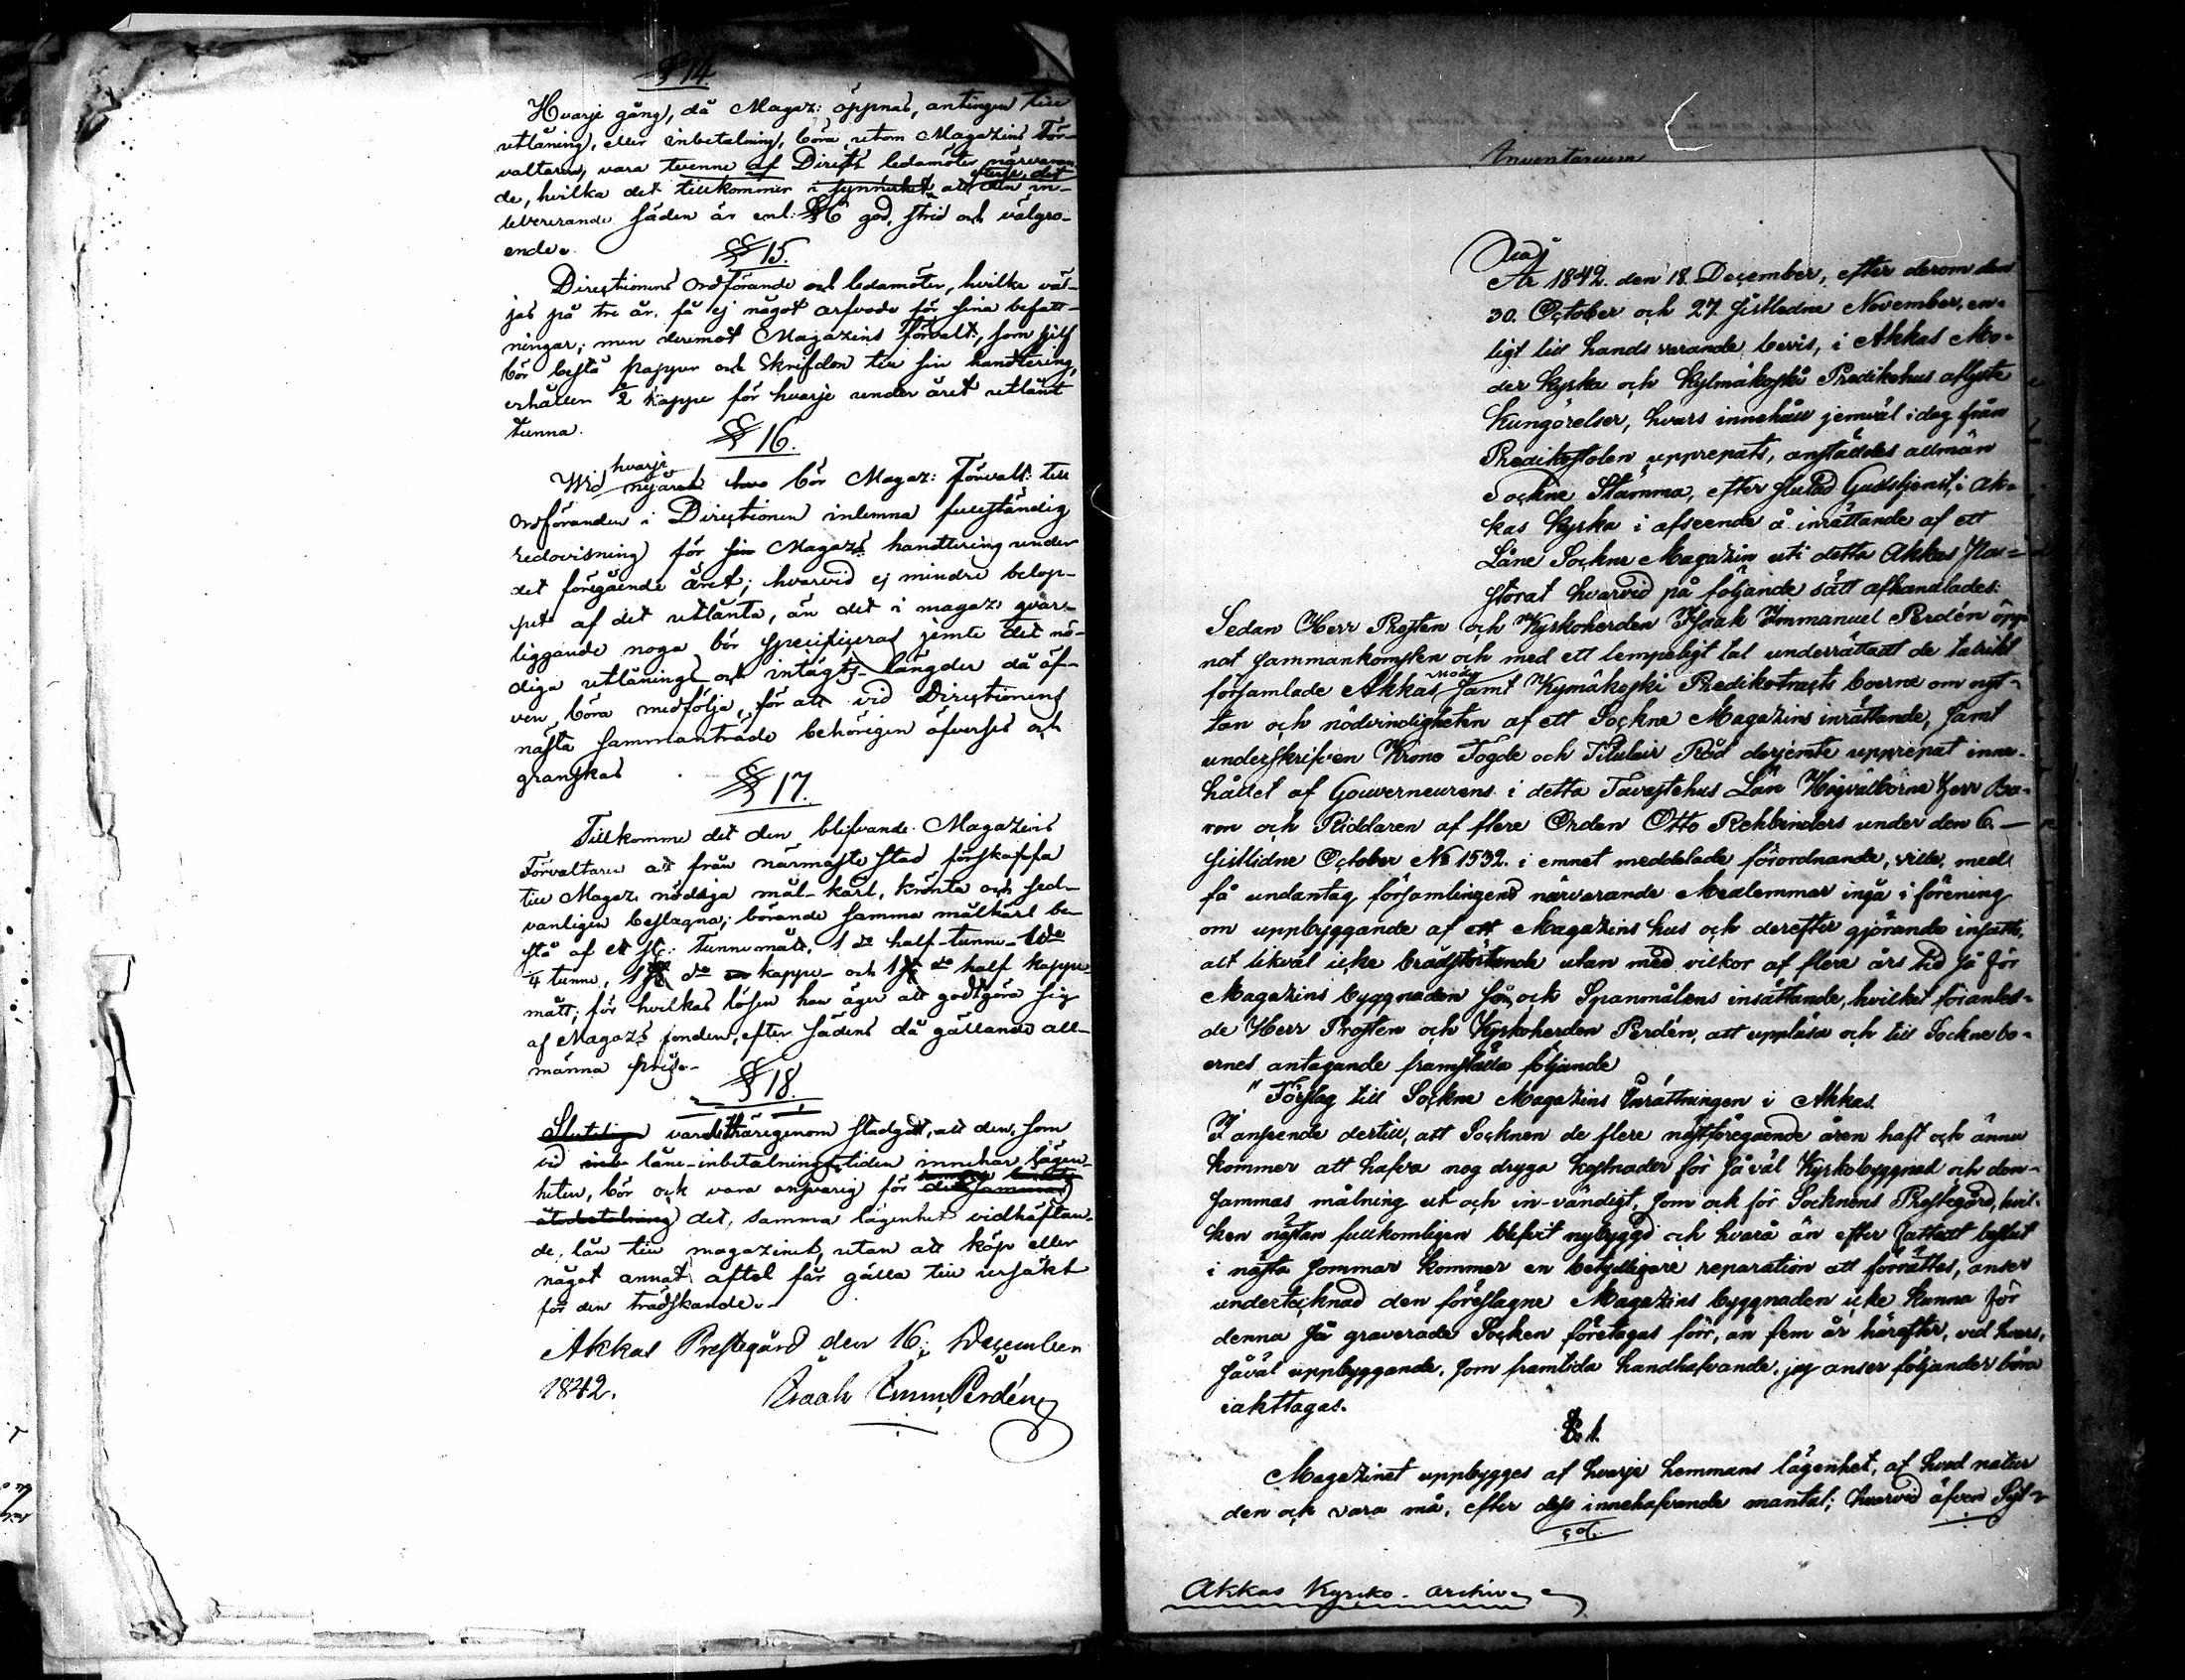 § 14.
Hvarje gång, då Magaz: öppnas, antingen till
utlåning, eller inbetalning, böra, utom Magazins För-
valtaren, vara tvenne af Direct:s ledamöter närvaran-
de, hvilka det tillkommer i synnerhet att efterse, det den in-
levererande säden är enl: § 6 god, strid och välgro-
ende.
§ 15.
Directionens Ordförande och ledamöter, hvilke väl-
jas på tre år, få ej något arfvode för sina befatt-
ningar; men deremot Magazins förvalt:, som sjelf
bör bestå papper och Skrifdon till sin handtering,
erhåller 2 kappe för hvarje under året utlånt
tunna.
§ 16.
Wid hvarje nyåret bör Magaz: Förvalt: till
Ordföranden i Directionen inlemna fullständig
redovisning för sin Magaz:s handtering under
det föregående året; hvarvid ej mindre belop-
pet af det utlånta, än det i magaz: qvar-
liggande noga bör specificeras jemte det nö-
diga utlånings och intägts-längder då äf-
ven böra medfölja, för att vid Directionens
nästa sammanträde behörigen öfverses och
granskas
§ 17.
Tillkomme det den blifvande Magazins
Förvaltaren att från närmaste stad förskaffa
till Magaz: nödiga mål-kärl, krönta och sed-
vanligen beslagna; börande samma målkärl be-
stå af ett st: Tunnemått, 1 do half-tunne- 1 do
4 tunne, 1 st do kappe- och 1 st do half kappe
mått; för hvilkas lösen han äger att godtgöra sig
af Magaz:s fonden, efter sädens då gällande all-
männa pris.-
§ 18.
Slutligen varder härigenom stadgat, att den, som
vid låne-inbetalningstiden innehar lägen-
heten, bör ock vara ansvarig för
återbetalning det, samma lägenhet vidhäftan-
de, lån till magazinet, utan att köp eller
något annat aftal får gälla till ursäkt
för den trädskande.-
Akkas Prestegård den 16: December
1842. Isaak Imm. Perdén
Inventarium
År 1842. den 18. December, efter derom den
30. October och 27. sistledne November, en-
ligt till hands varande bevis, i Akkas Mo-
der Kyrka och Kylmäkoski Predikohus aflyste
Kungörelser, hvars innehåll jemväl idag från
Predikostolen upprepats, anställdes allmän
Sockne Stämma, efter slutad Gudstjenst, i Ak-
kas Kyrka i afseende å inrättande af ett
Låne Sockne Magazin uti detta Akkas Pa-
storat hvarvid på följande sätt afhandlades:
Sedan Herr Prosten och Kyrkoherden Isaak Immanuel Perdén öpp-
nat sammankomsten och med ett lempeligt tal underrättadt de talrikt
församlade Akkas Moder samt Kymäkoski Predikotracts boerne om nyt-
tan och nödvindigheten af ett Sockne Magazins inrättande, samt
underskrifven Krono Fogde och Titulair Råd derjemte upprepat inne-
hållet af Gouverneurens i detta Tavastehus Län Högvälborne Herr Ba-
ron och Riddaren af flere Orden Otto Rehbinders under den 6.
sistlidne October № 1532. i emnet meddelade förordnande, ville, med
få undantag, församlingens närvarande Medlemmar ingå i förening
om uppbyggande af ett Magazins hus och derefter gjörande insatts,
att likväl icke brådstörtande utan med vilkor af flere års tid så för
Magazins byggnaden som ock Spanmålens insättande, hvilket föranled-
de Herr Prosten och Kyrkoherden Perdén, att uppläsa och till Socknebo-
ernes antagande framställa följande
"Förslag till Sockne Magazins Inrättningen i Akkas.
I anseende dertill, att Socknen de flere nästföregående åren haft och ännu
kommer att hafva nog dryga kostnader för såväl Kyrkobyggnad och den-
sammas målning ut och in-vändigt, som ock för Socknens Prestegård, hvil-
ken nästan fullkomligen blifvit nybyggd och hvarå än efter fattadt beslut
i nästa sommar kommer en betydligare reparation att förrättas, anser
undertecknad den föreslagne Magazins byggnaden icke kunna för
denna så graverade Socken företagas förr, än fem år härefter, vid hvars,
såväl uppbyggande, som framtida handhafvande, jag anser följande böra
iakttagas.
§ 1.
Magazinet uppbygges af hvarje hemmans lägenhet, af hvad natur
den ock vara må, efter dess innehafvande mantal; hvarvid äfven Syt-
Akkas Kyrko-archiv